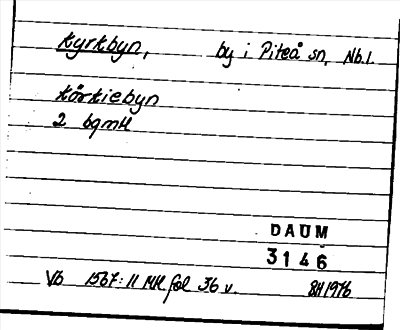 Kyrkbyn, by i Piteå sn, Nb.l.
Körkiebyn
2 bgmH
DAUM
3146
Vb 1567:11 MH fol 36 v. BH 1976